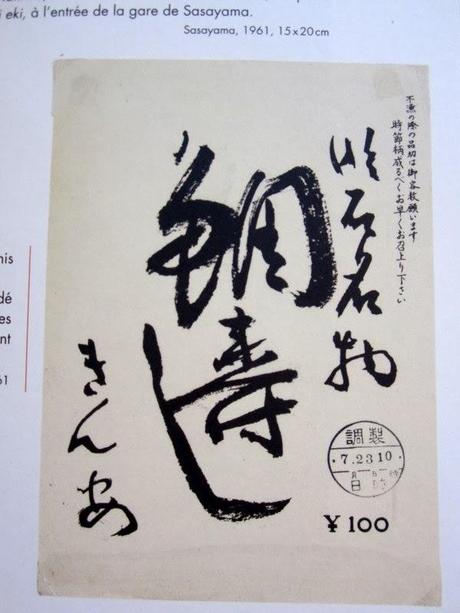 i eki, à l'entrée de la gare de Sasayama.
Sasayama, 1961, 15x20cm
不漁の際の品切は御容赦願います
時節柄成るべくお早くお召上り下さい
明石名物
鯛寿し
きん安
調製
·7.23 10·
月 日 時
¥100
nis
dé
es
nt
61